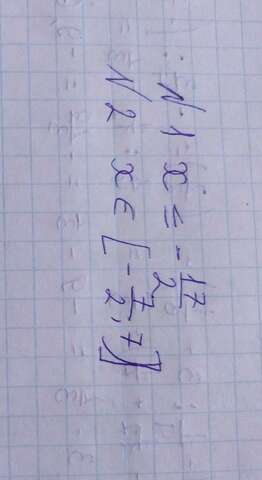 N1 x ≤ -17/2
N2 x ∈ [-7/2; 7]